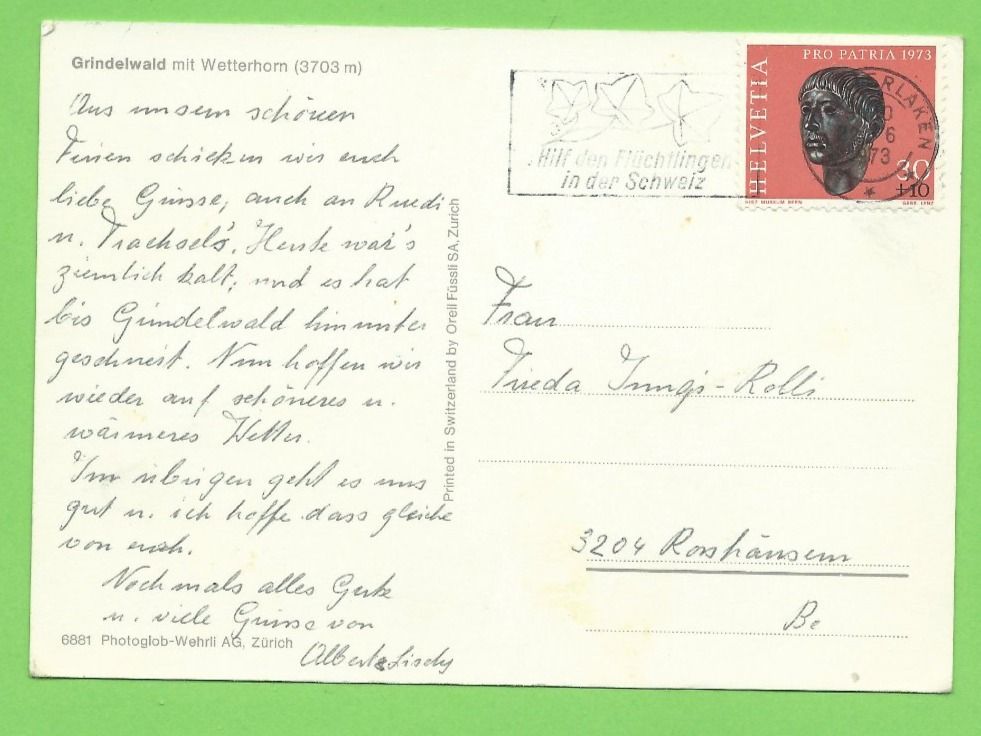 Grindelwald mit Wetterhorn (3703 m)
Aus unsern schönen
Ferien schicken wir euch
liebe Grüsse, auch an Ruedi
u. Trachsel's. Heute war's
ziemlich kalt, und es hat
bis Grindelwald hinunter
geschneit. Nun hoffen wir
wieder auf schöneres u.
wärmeres Wetter.
Im übrigen geht es uns
gut u. ich hoffe dass gleiche
von euch.
Nochmals alles Gute
u. viele Grüsse von
Albert & Lisely
6881 Photoglob-Wehrli AG, Zürich
Printed in Switzerland by Orell Füssli SA, Zürich
Hilf den Flüchtlingen
in der Schweiz
HELVETIA
PRO PATRIA 1973
30
+10
HIST. MUSEUM BERN
ERLAKEN
6
73
Frau
Frieda Jungi-Rolli
3204 Rosshäusern
Be